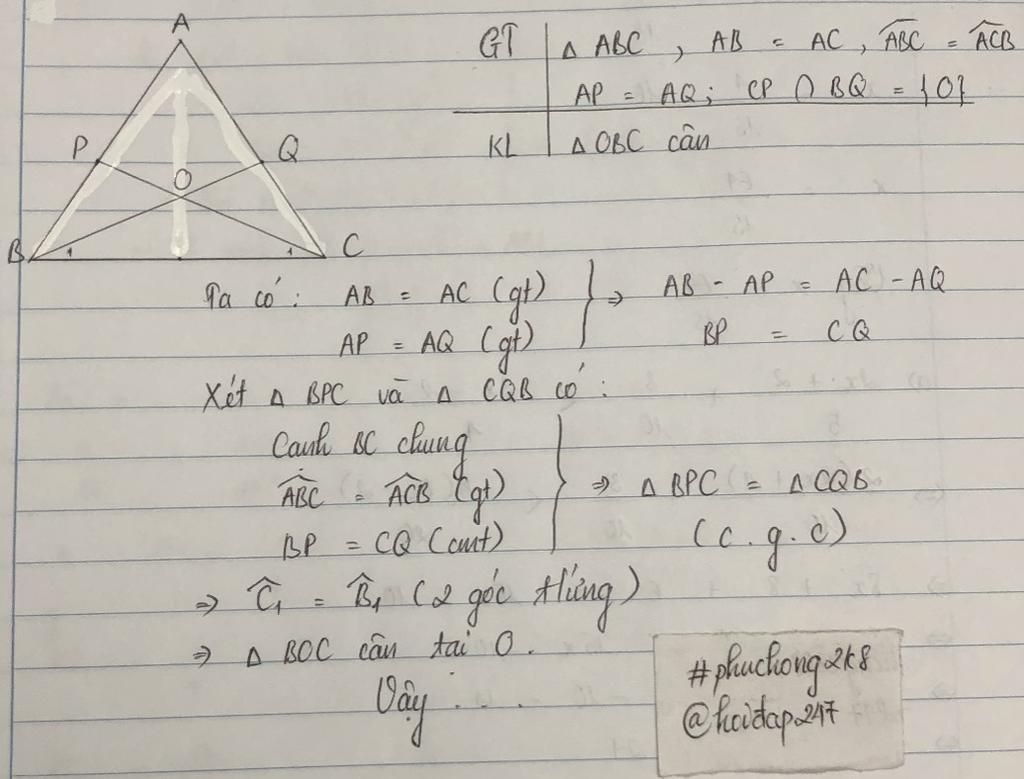 A
P
Q
O
B
C
GT
Δ ABC , AB = AC , \widehat{ABC} = \widehat{ACB}
AP = AQ ; CP ∩ BQ = {O}
KL
Δ OBC cân
Ta có : AB = AC (gt)
AP = AQ (gt)
⇒ AB - AP = AC - AQ
BP = CQ
Xét Δ BPC và Δ CQB có :
Cạnh BC chung
\widehat{ABC} = \widehat{ACB} (gt)
BP = CQ (cmt)
⇒ Δ BPC = Δ CQB
(c . g . c)
⇒ Ĉ₁ = B̂₁ (2 góc t/ứng)
⇒ Δ BOC cân tai O .
Vậy . . .
#phuchong2k8
@hoidap247